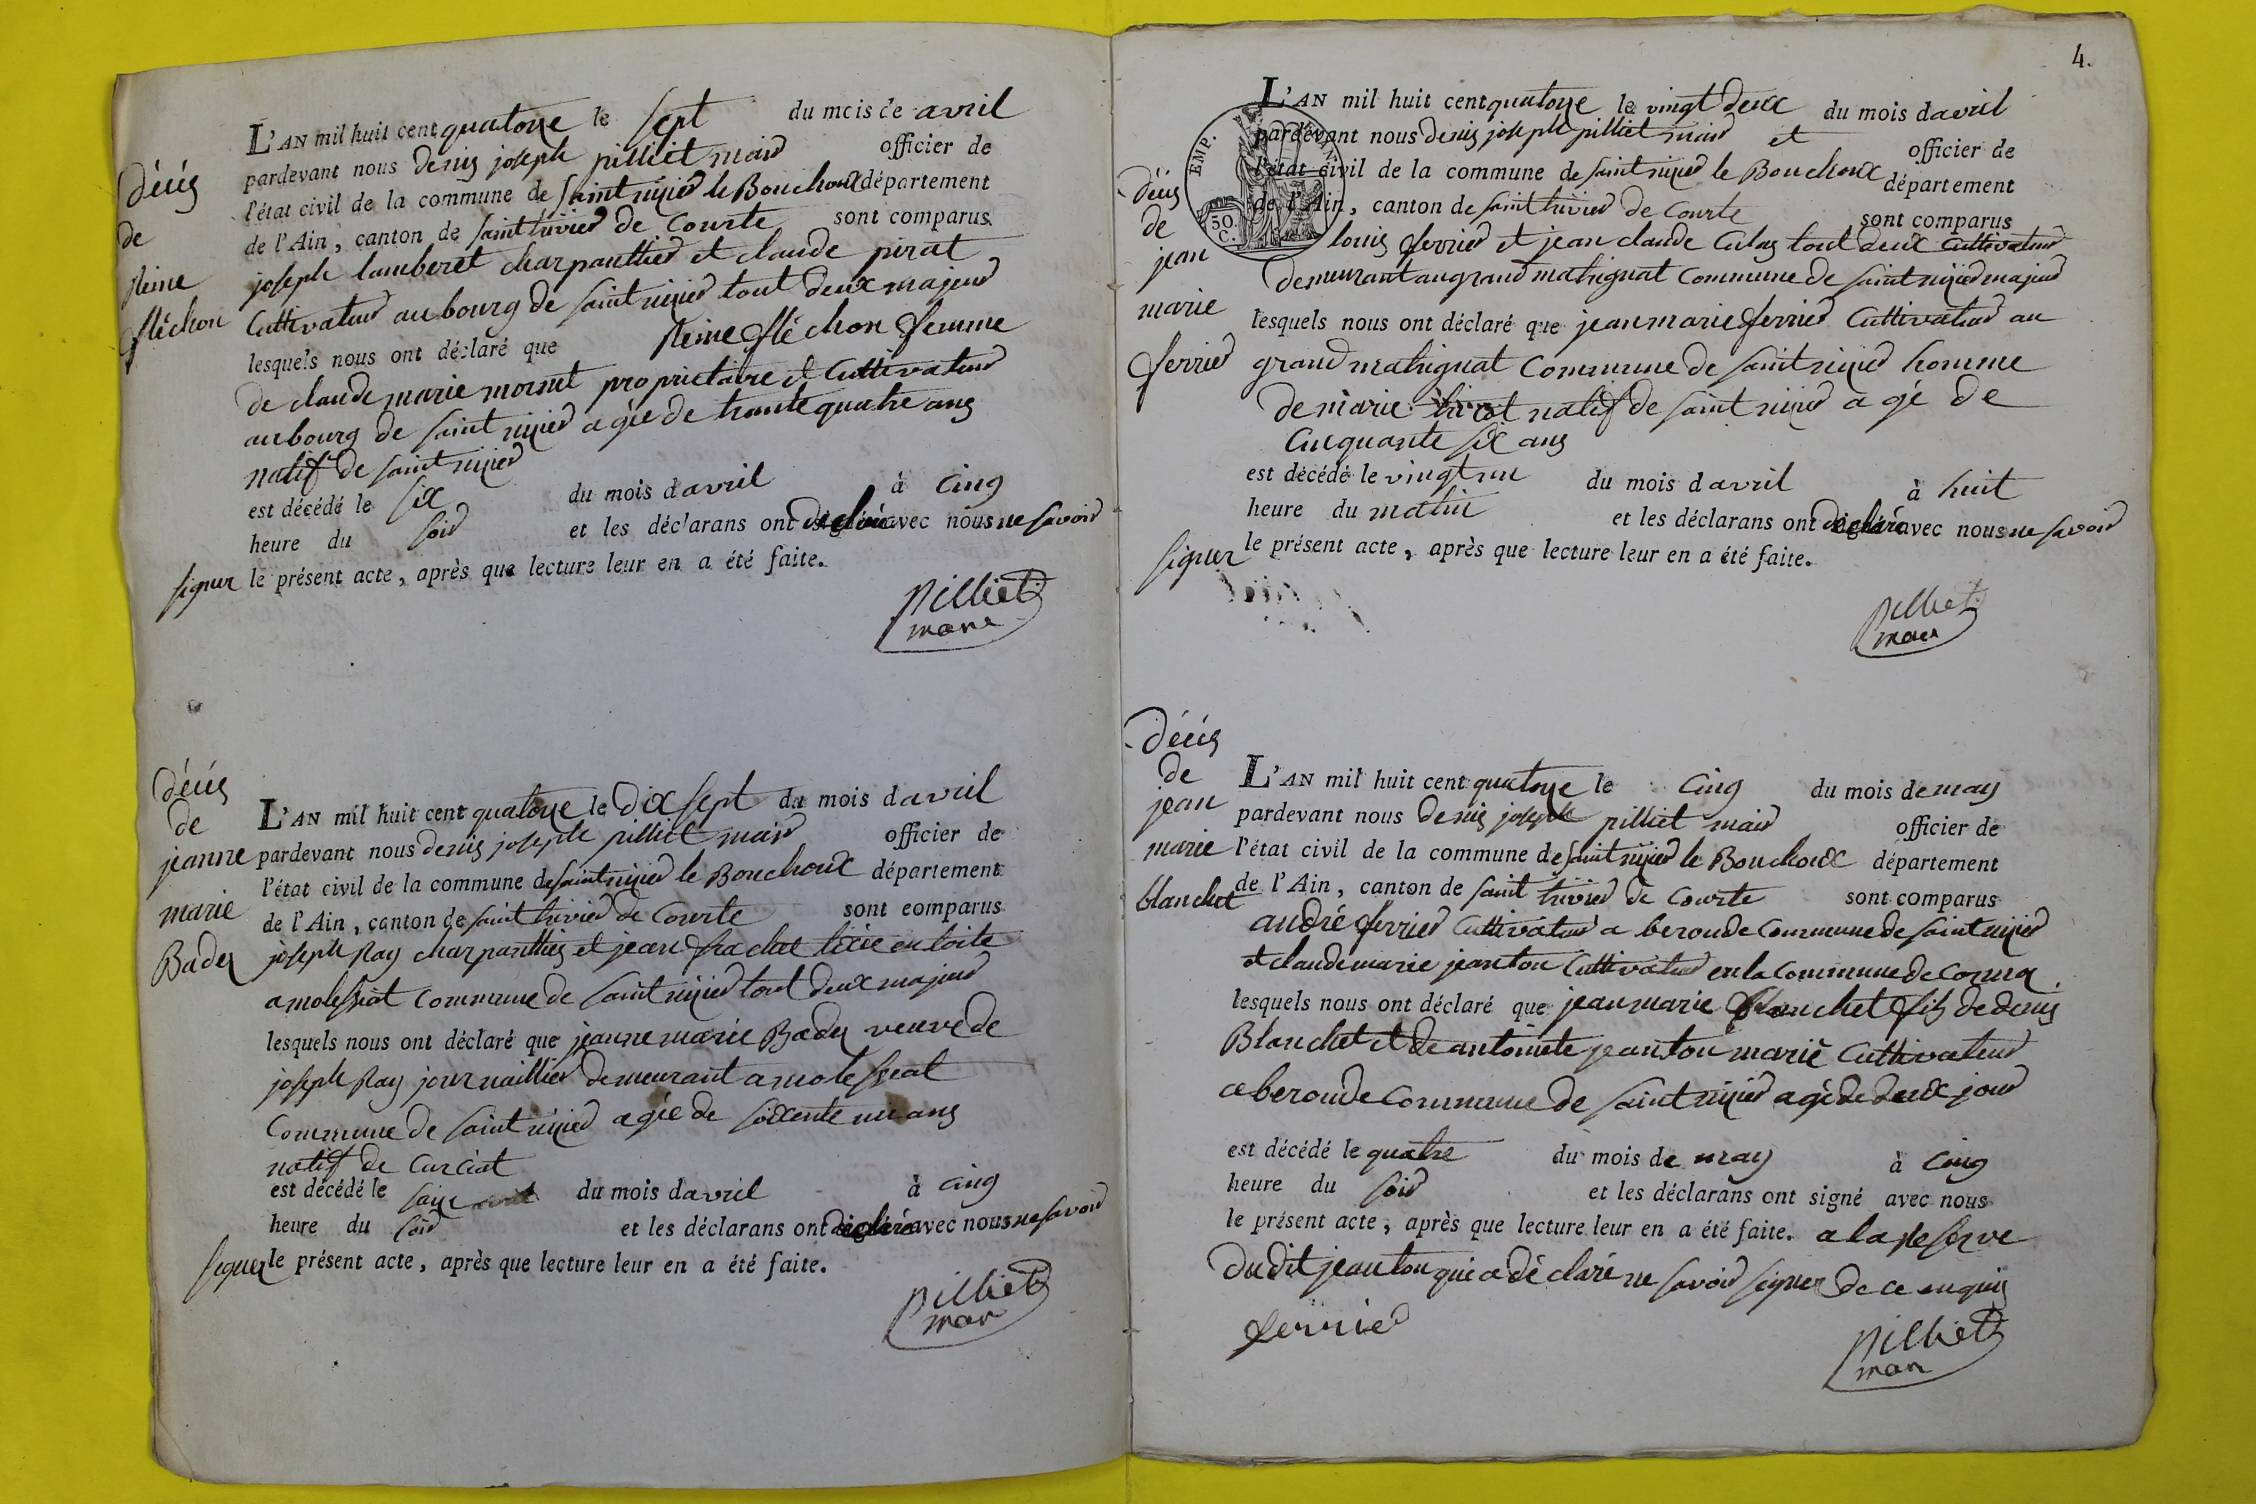 décès
de
Reine
fléchon
L'AN mil huit cent quatorze le sept du mois de avril
pardevant nous denis joseph pilliet maire officier de
l'état civil de la commune de saint nizier le Bouchoux département
de l'Ain, canton de saint trivier de Courte sont comparus
joseph lamberet charpanthier et claude pirat
Cultivateur au bourg de saint nizier tout deux majeur
lesquels nous ont déclaré que Reine fléchon femme
de claude marie mornet proprietaire et Cultivateur
au bourg de saint nizier agée de trante quatre ans
natif de saint nizier
est décédé le six du mois d avril à cinq
heure du soir et les déclarans ont déclaré avec nous ne savoir
signer le présent acte, après que lecture leur en a été faite.
pilliet
maire
décès
de
jeanne
marie
Badez
L'AN mil huit cent quatorze le dix sept du mois d avril
pardevant nous denis joseph pilliet maire officier de
l'état civil de la commune de saint nizier le Bouchoux département
de l'Ain, canton de saint trivier de Courte sont comparus
joseph Ray charpanthier et jean frachet
a molessiat commune de saint nizier tout deux majeur
lesquels nous ont déclaré que jeanne marie Badez veuve de
joseph Ray journaillier demeurant a molessiat
Commune de saint nizier agée de soixente un ans
natif de Curciat
est décédé le saize du mois d avril à cinq
heure du soir et les déclarans ont déclaré avec nous ne savoir
signer le présent acte, après que lecture leur en a été faite.
pilliet
maire
4.
EMP.
50
C.
décès
de
jean
marie
ferrier
L'AN mil huit cent quatorze le vingt deux du mois d avril
pardevant nous denis joseph pilliet maire et officier de
l'état civil de la commune de saint nizier le Bouchoux département
de l'Ain, canton de saint trivier de Courte sont comparus
louis ferrier et jean claude Culas tout deux Cultivateur
demeurant au grand matrignat Commune de saint nizier majeur
lesquels nous ont déclaré que jean marie ferrier Cultivateur au
grand matrignat Commune de saint nizier homme
de marie natif de saint nizier agé de
Cinquante six ans
est décédé le vingt un du mois d avril à huit
heure du matin et les déclarans ont déclaré avec nous ne savoir
signer le présent acte, après que lecture leur en a été faite.
pilliet
maire
décès
de
jean
marie
blanchet
L'AN mil huit cent quatorze le cinq du mois de may
pardevant nous denis joseph pilliet maire officier de
l'état civil de la commune de saint nizier le Bouchoux département
de l'Ain, canton de saint trivier de Courte sont comparus
andré ferrier Cultivateur a beroude Commune de saint nizier
et claude marie jeanton Cultivateur en la Commune de Cormoz
lesquels nous ont déclaré que jean marie Blanchet fils de denis
Blanchet et de antoinete jeanton marié Cultivateur
a beroude Commune de saint nizier agé de deux jour
est décédé le quatre du mois de may à cinq
heure du soir et les déclarans ont signé avec nous
le présent acte, après que lecture leur en a été faite. a la Reserve
du dit jeanton qui a déclaré ne savoir signer de ce enquis
ferrier
pilliet
maire